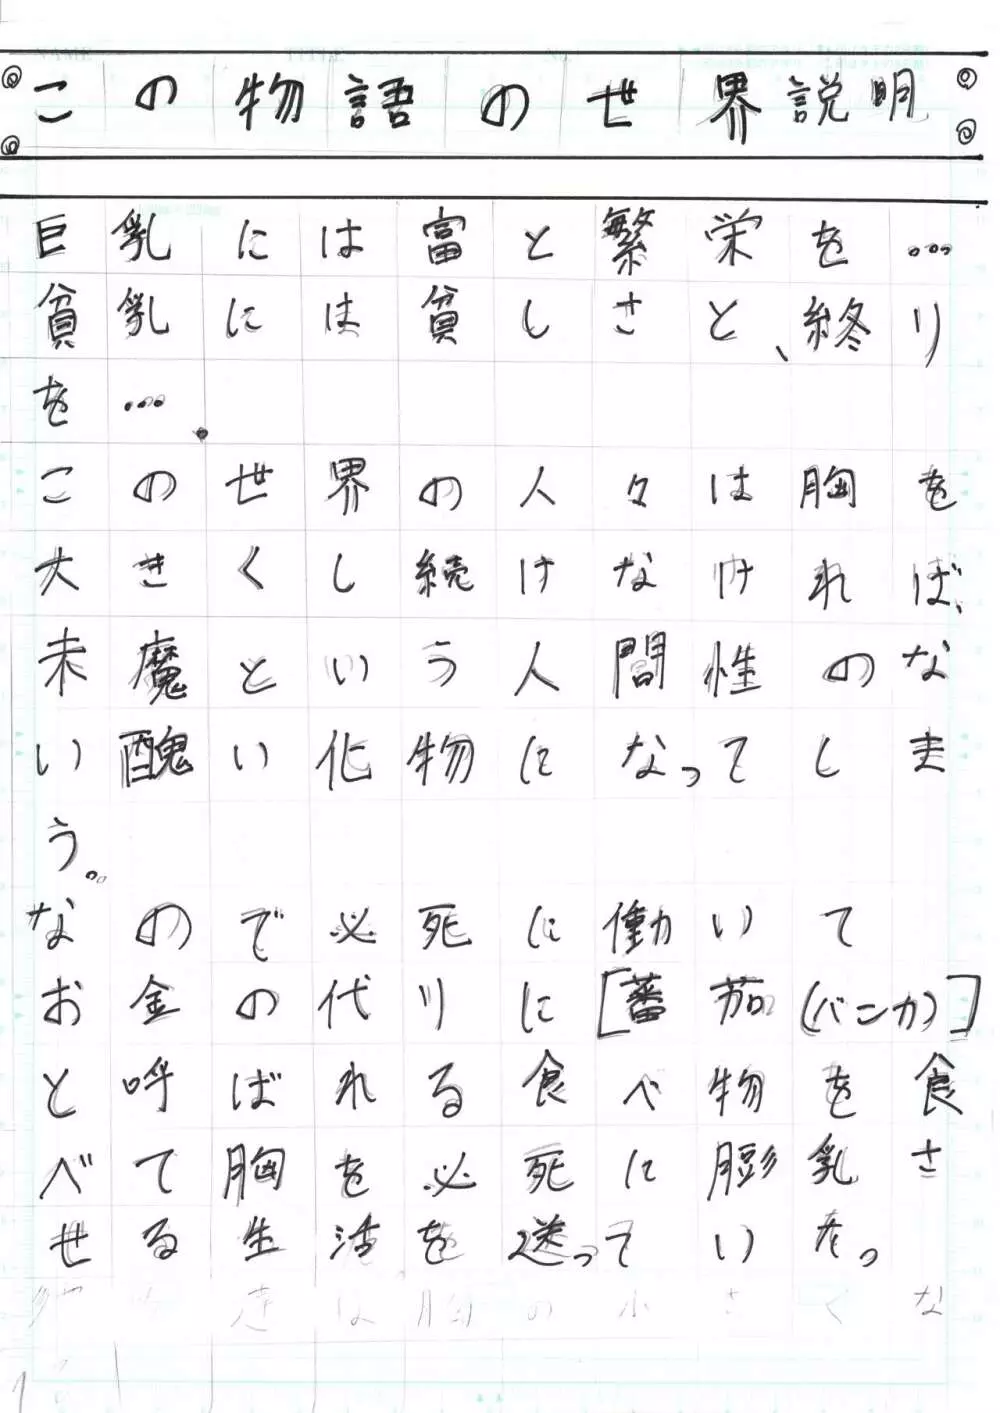 この物語の世界説明
巨乳には富と繁栄を…
貧乳には貧しさと、終り
を….
この世界の人々は胸を
大きくし続けなければ、
未魔という人間性のな
い醜い化物になってしま
う。
なので必死に働いて
お金の代りに[蕃茄(バンカ)]
と呼ばれる食べ物を食
べて胸を必死に膨乳さ
せる生活を送っていた。
達は胸の小さくな